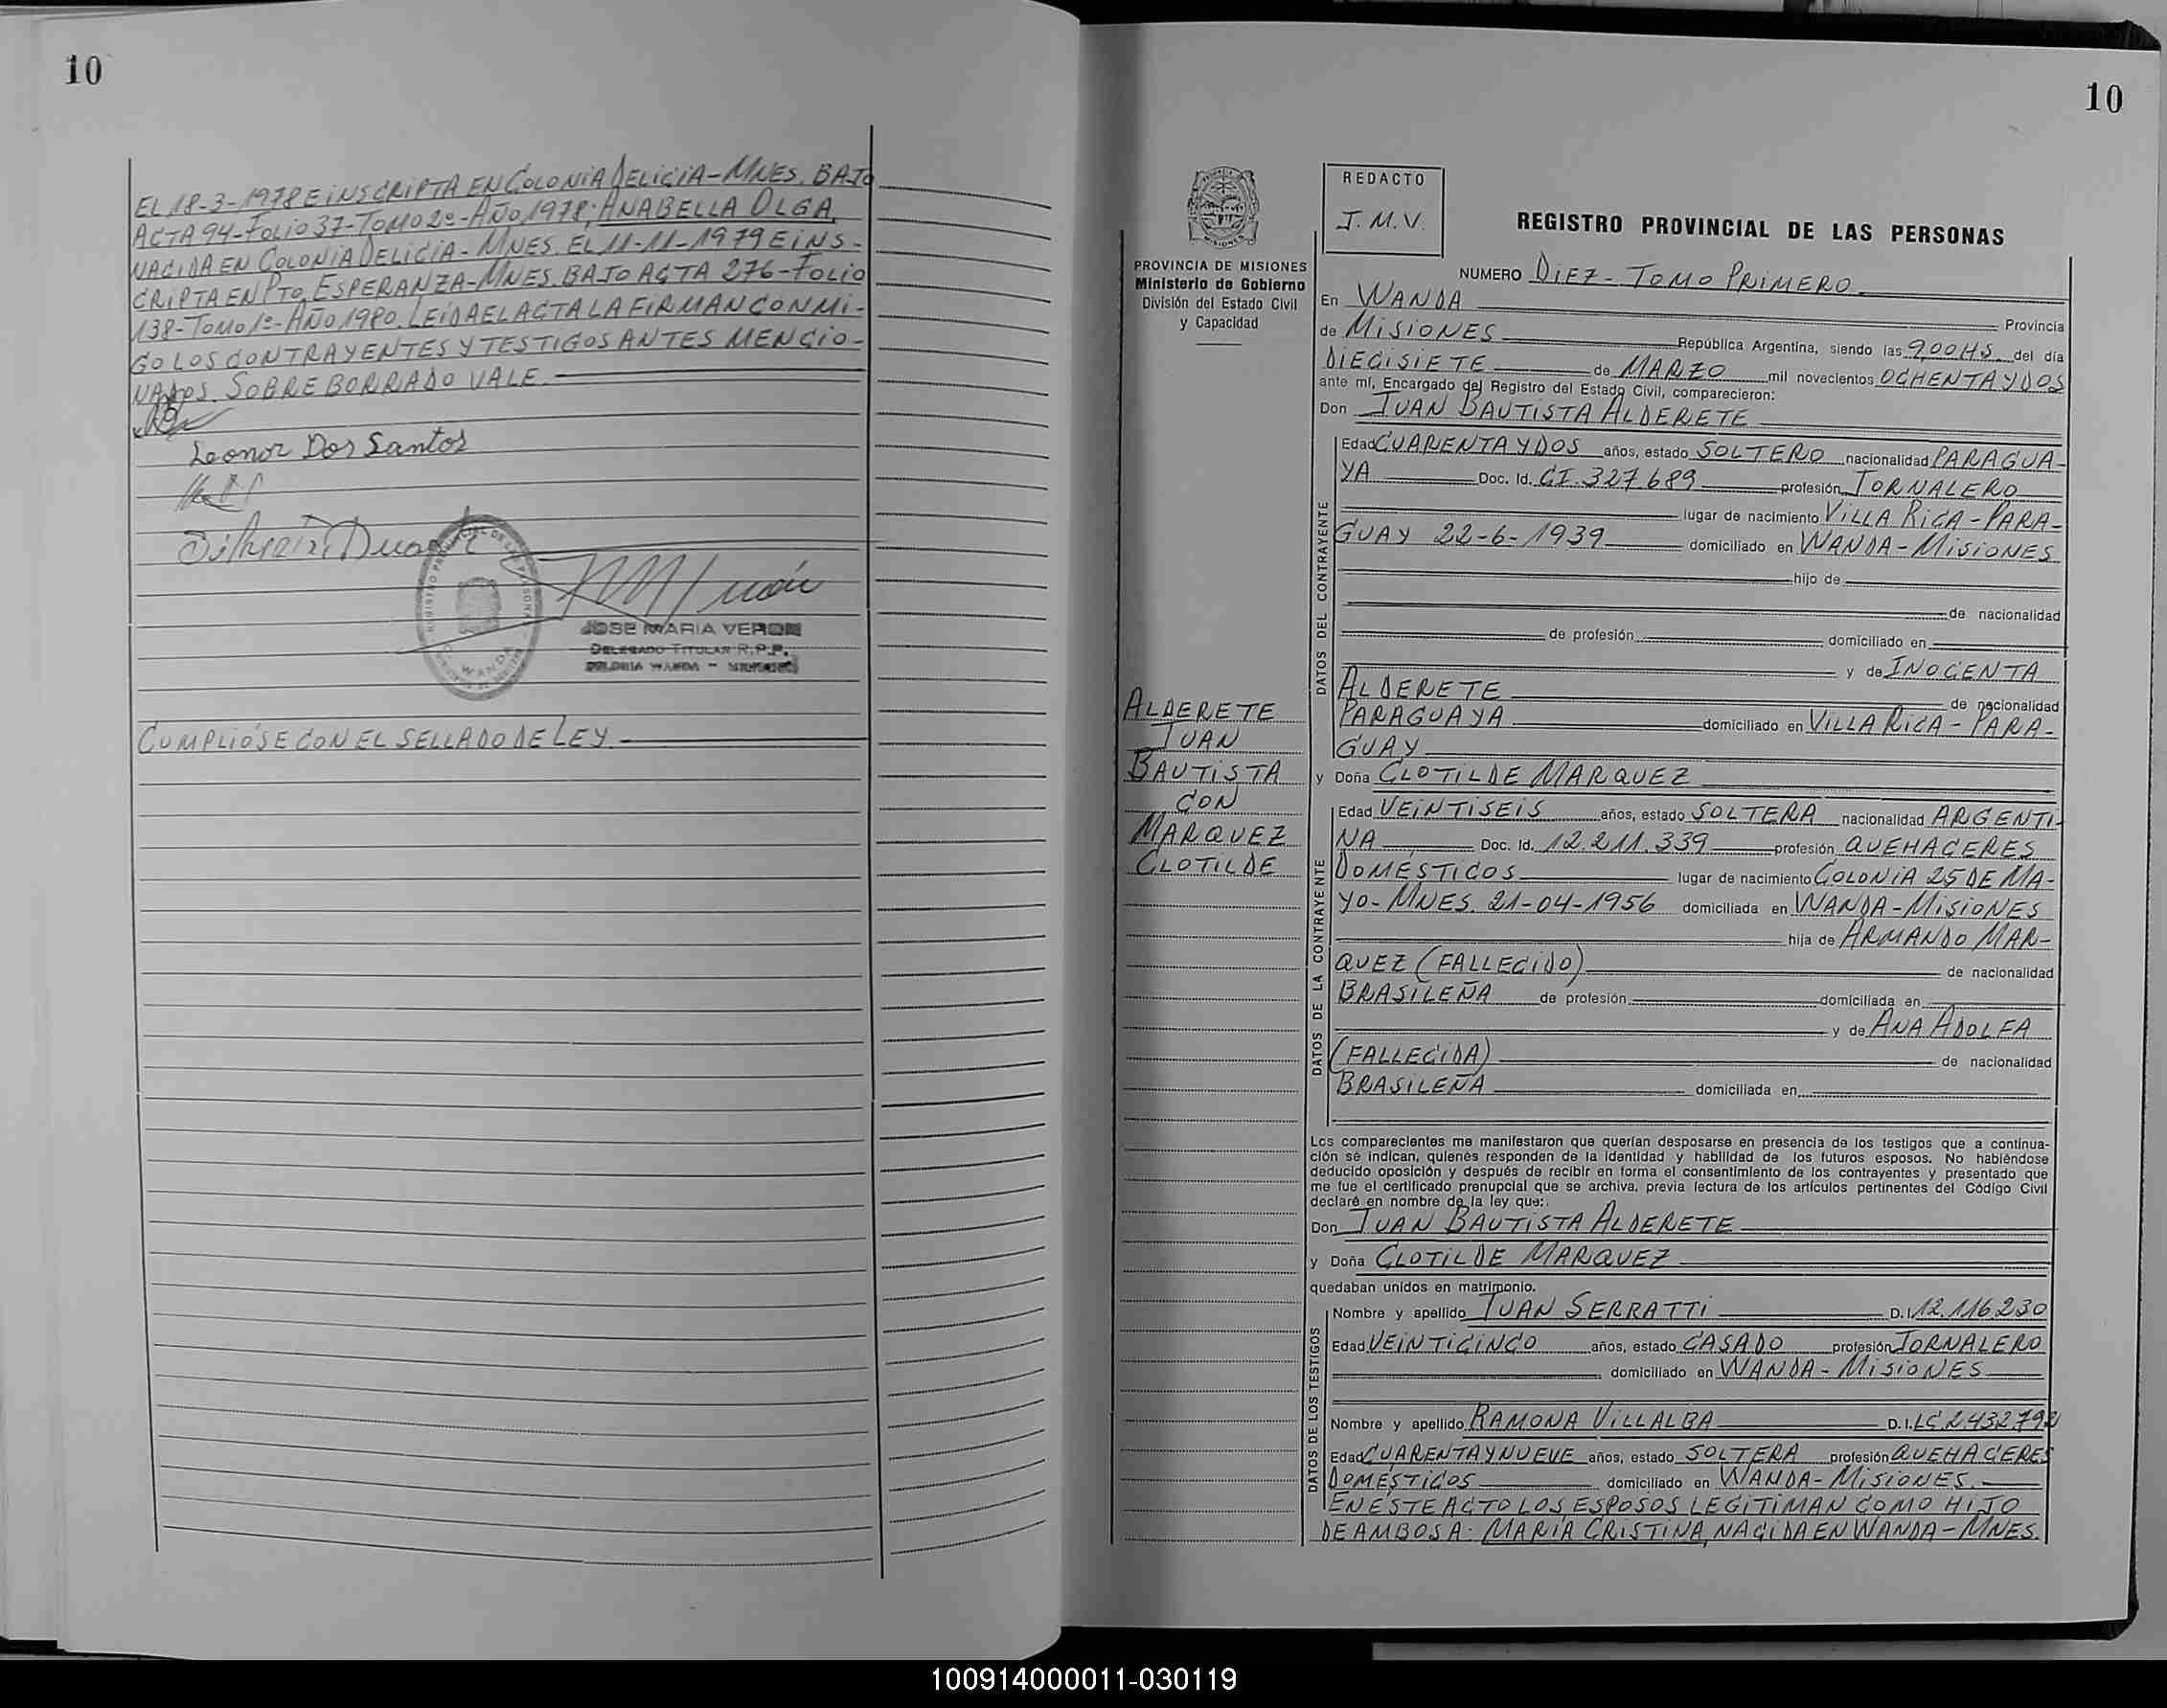 10
EL 18-3-1978 E INSCRIPTA EN COLONIA DELICIA-MNES. BAJO
ACTA 94-FOLIO 37-TOMO 2º-AÑO 1978; ANABELLA OLGA,
NACIDA EN COLONIA DELICIA-MNES. EL 11-11-1979 E INS-
CRIPTA EN PTO. ESPERANZA-MNES. BAJO ACTA 276-FOLIO
138-TOMO 1º-AÑO 1980. LEIDA EL ACTA LA FIRMAN CONMI-
GO LOS CONTRAYENTES Y TESTIGOS ANTES MENCIO-
NADOS. SOBRE BORRADO VALE.
Leonor Dos Santos
JOSE MARIA VERON
DELEGADO TITULAR R.P.P.
COLONIA WANDA - MISIONES
WANDA
CUMPLIÓSE CON EL SELLADO DE LEY.
10
REDACTO
J.M.V.
REGISTRO PROVINCIAL DE LAS PERSONAS
MISIONES
PROVINCIA DE MISIONES
Ministerio de Gobierno
División del Estado Civil
y Capacidad
ALDERETE
JUAN
BAUTISTA
CON
MARQUEZ
CLOTILDE
NUMERO DIEZ - TOMO PRIMERO
En WANDA Provincia
de MISIONES República Argentina, siendo las 9,00 HS. del día
DIECISIETE de MARZO mil novecientos OCHENTA Y DOS
ante mí, Encargado del Registro del Estado Civil, comparecieron:
Don JUAN BAUTISTA ALDERETE
DATOS DEL CONTRAYENTE
Edad CUARENTA Y DOS años, estado SOLTERO nacionalidad PARAGUA-
YA Doc. Id. CI. 327.689 profesión JORNALERO
lugar de nacimiento VILLA RICA-PARA-
GUAY 22-6-1939 domiciliado en WANDA-MISIONES
hijo de
de nacionalidad
de profesión domiciliado en
y de INOCENTA
ALDERETE de nacionalidad
PARAGUAYA domiciliado en VILLA RICA-PARA-
GUAY
y Doña CLOTILDE MARQUEZ
DATOS DE LA CONTRAYENTE
Edad VEINTISEIS años, estado SOLTERA nacionalidad ARGENTI-
NA Doc. Id. 12.211.339 profesión QUEHACERES
DOMÉSTICOS lugar de nacimiento COLONIA 25 DE MA-
YO-MNES. 21-04-1956 domiciliada en WANDA-MISIONES
hija de ARMANDO MAR-
QUEZ (FALLECIDO) de nacionalidad
BRASILEÑA de profesión domiciliada en
y de ANA ADOLFA
(FALLECIDA) de nacionalidad
BRASILEÑA domiciliada en
Los comparecientes me manifestaron que querían desposarse en presencia de los testigos que a continua-
ción se indican, quienes responden de la identidad y habilidad de los futuros esposos. No habiéndose
deducido oposición y después de recibir en forma el consentimiento de los contrayentes y presentado que
me fue el certificado prenupcial que se archiva, previa lectura de los artículos pertinentes del Código Civil
declaré en nombre de la ley que:
Don JUAN BAUTISTA ALDERETE
y Doña CLOTILDE MARQUEZ
quedaban unidos en matrimonio.
DATOS DE LOS TESTIGOS
Nombre y apellido JUAN SERRATTI D.I. 12.116.230
Edad VEINTICINCO años, estado CASADO profesión JORNALERO
domiciliado en WANDA-MISIONES
Nombre y apellido RAMONA VILLALBA D.I. LC. 2432.792
Edad CUARENTA Y NUEVE años, estado SOLTERA profesión QUEHACERES
DOMÉSTICOS domiciliado en WANDA-MISIONES.
EN ESTE ACTO LOS ESPOSOS LEGITIMAN COMO HIJO
DE AMBOS A: MARIA CRISTINA, NACIDA EN WANDA-MNES.
100914000011-030119